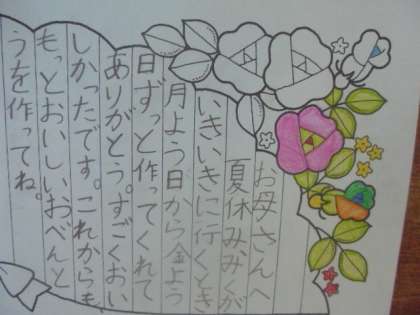 お母さんへ
夏休み、がく
いきいきに行くとき
月よう日から金よう
日ずっと作ってくれて
ありがとう。すごくおい
しかったです。これからも、
もっとおいしいおべんと
うを作ってね。